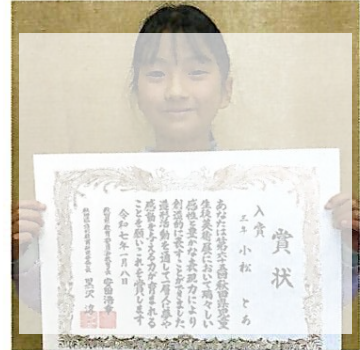 賞状
入賞
三年 小松 とあ
あなたは第六十五回秋田県児童
生徒美術展において瑞々しい
感性と豊かな表現力により
創造的に表すことができました
造形活動を通して一層人に夢や
感動を与える力が育まれる
ことを願いこれを賞します
令和七年一月八日